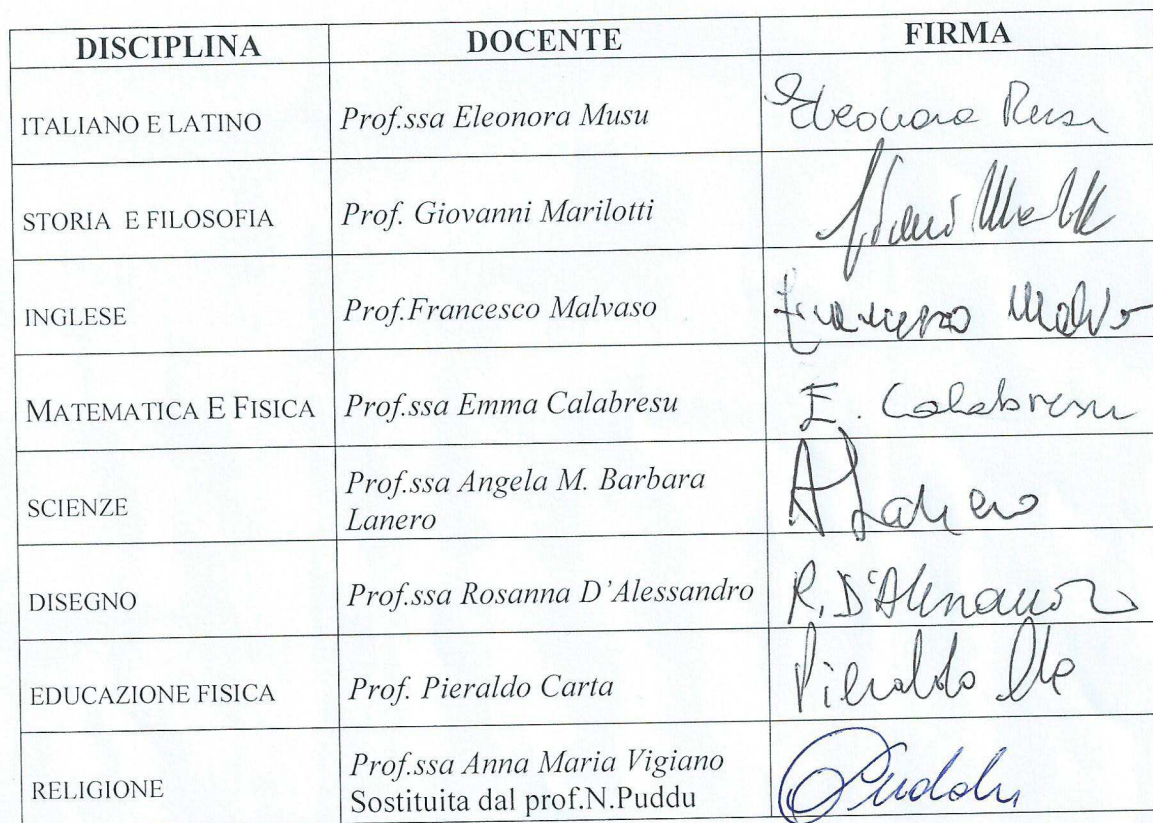 DISCIPLINA DOCENTE FIRMA
ITALIANO E LATINO Prof.ssa Eleonora Musu Eleonora Musu
STORIA E FILOSOFIA Prof. Giovanni Marilotti
INGLESE Prof.Francesco Malvaso Francesco
MATEMATICA E FISICA Prof.ssa Emma Calabresu E. Calabresu
SCIENZE Prof.ssa Angela M. Barbara
Lanero A Lanero
DISEGNO Prof.ssa Rosanna D'Alessandro R. D'Alessandro
EDUCAZIONE FISICA Prof. Pieraldo Carta Pieraldo
RELIGIONE Prof.ssa Anna Maria Vigiano
Sostituita dal prof.N.Puddu Puddu